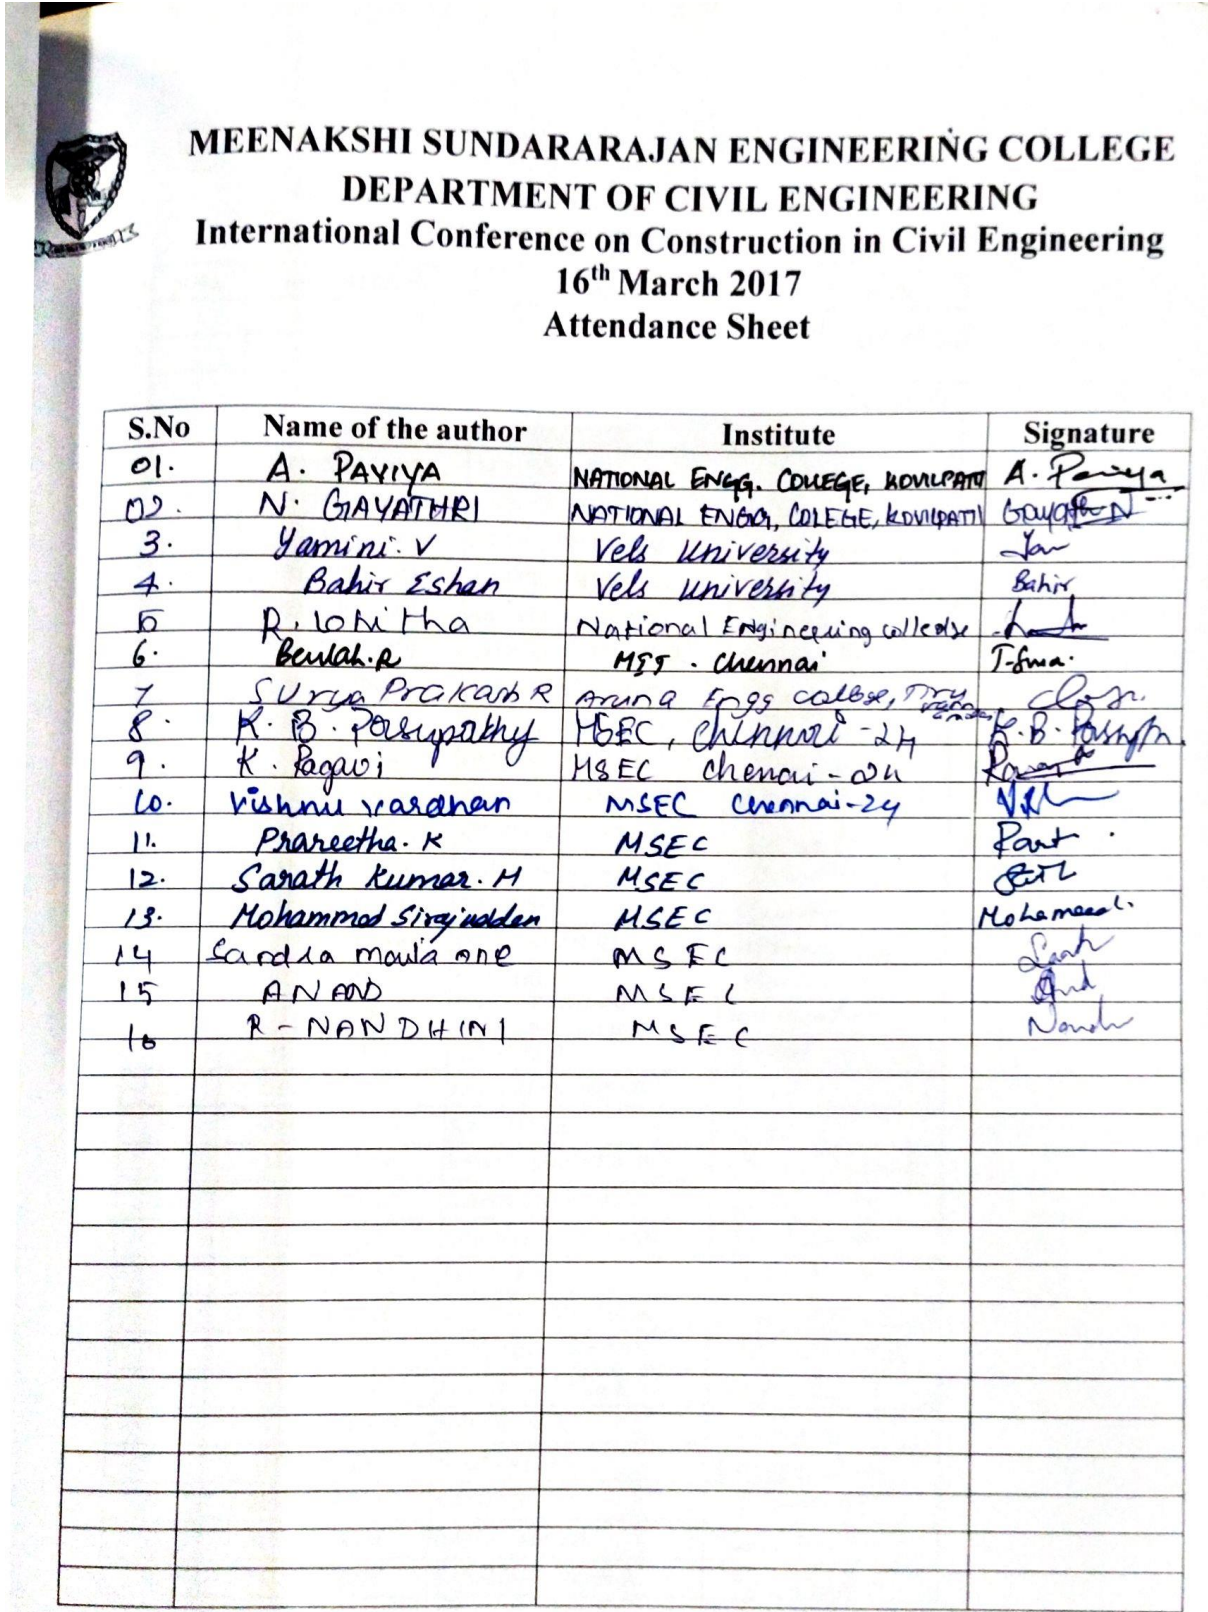 MEENAKSHI SUNDARARAJAN ENGINEERING COLLEGE
DEPARTMENT OF CIVIL ENGINEERING
International Conference on Construction in Civil Engineering
16th March 2017
Attendance Sheet
S.No Name of the author Institute Signature
01. A. PAVIYA NATIONAL ENGG. COLLEGE, KOVILPATTI A. Paviya
02. N. GAYATHRI NATIONAL ENGG, COLEGE, KOVILPATTI Gayathri N
3. Yamini. V Vels University
4. Bahir Eshan Vels University Bahir
5 R. Lohitha National Engineering college
6. Beulah.R MIT . Chennai
7 Surya Prakash R Aruna Engg college,
8. K. B. Pasupathy MSEC, Chennai - 24 K. B. Pasupa
9. K. Ragavi MSEC Chenai - 24
10. Vishnu Vardhan MSEC Chennai-24
11. Prareetha. K MSEC
12. Sarath Kumar. M MSEC
13. Mohammod Sirajudden MSEC Mohameed.
14 Sandra moula one MSEC
15 ANAND MSEC
16 R - NANDHINI MSEC Nandh